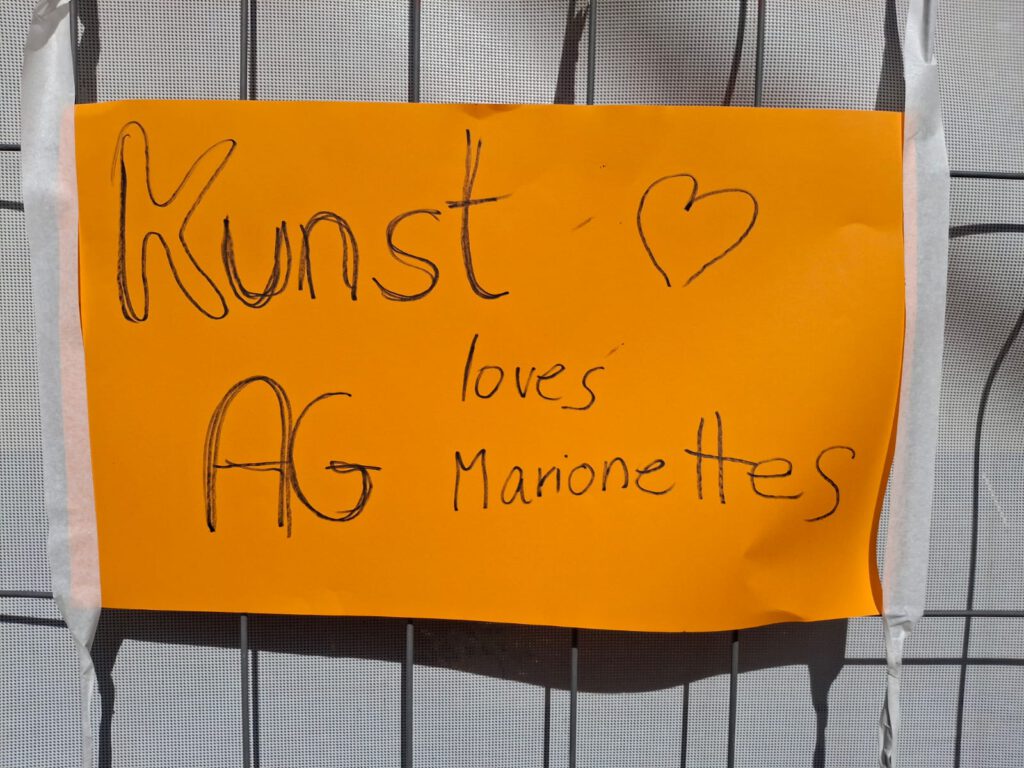 Kunst ♡
loves
AG Marionettes